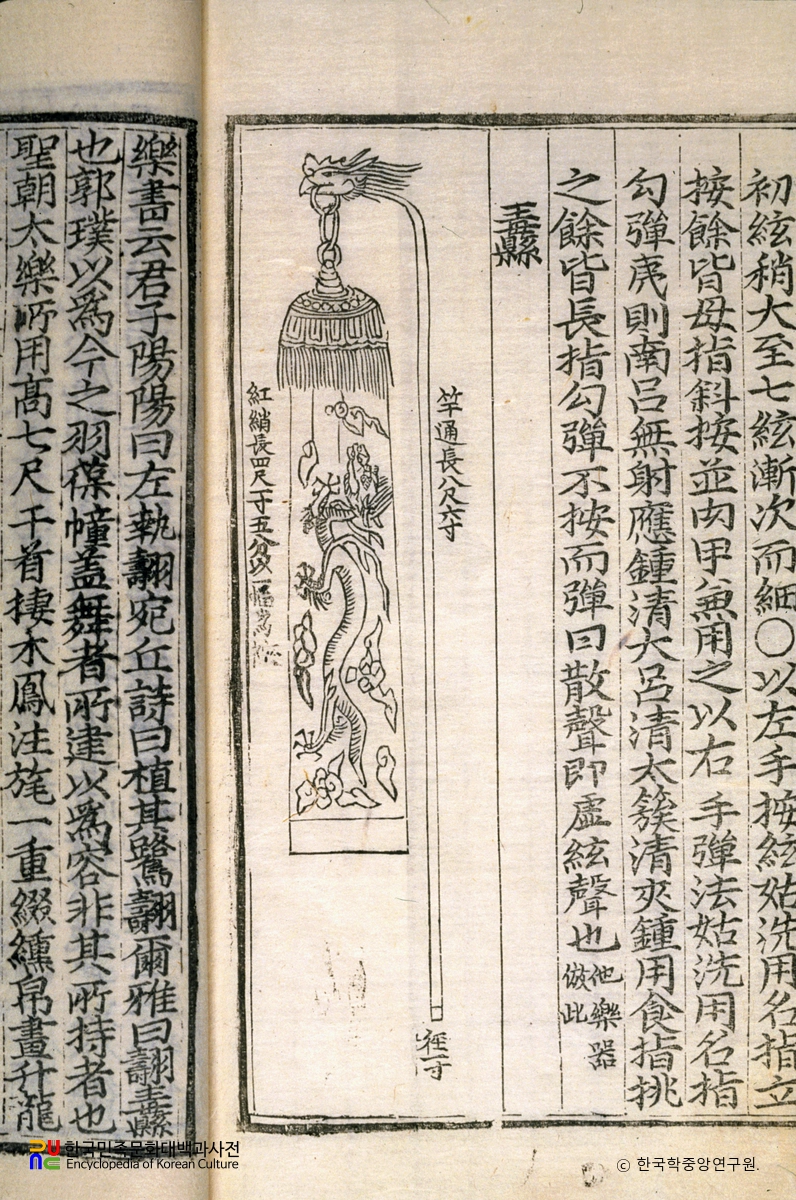 初絃稍大至七絃漸次而細○以左手按絃姑洗用名指立
按餘皆母指斜按並肉甲兼用之以右手彈法姑洗用名指
勾彈夷則南呂無射應鍾清大呂清太簇清夾鍾用食指挑
之餘皆長指勾彈不按而彈曰散聲即虛絃聲也他樂器
倣此
纛
竿通長八尺六寸
徑一寸
紅綃長四尺一寸五分以一幅爲
樂書云君子陽陽曰左執翿宛丘詩曰植其鷺翿爾雅曰翿纛
也郭璞以爲今之羽葆幢盖舞者所建以爲容非其所持者也
聖朝太樂所用高七尺干首棲木鳳注旄一重綴纁帛畫升龍
한국민족문화대백과사전
Encyclopedia of Korean Culture
© 한국학중앙연구원.